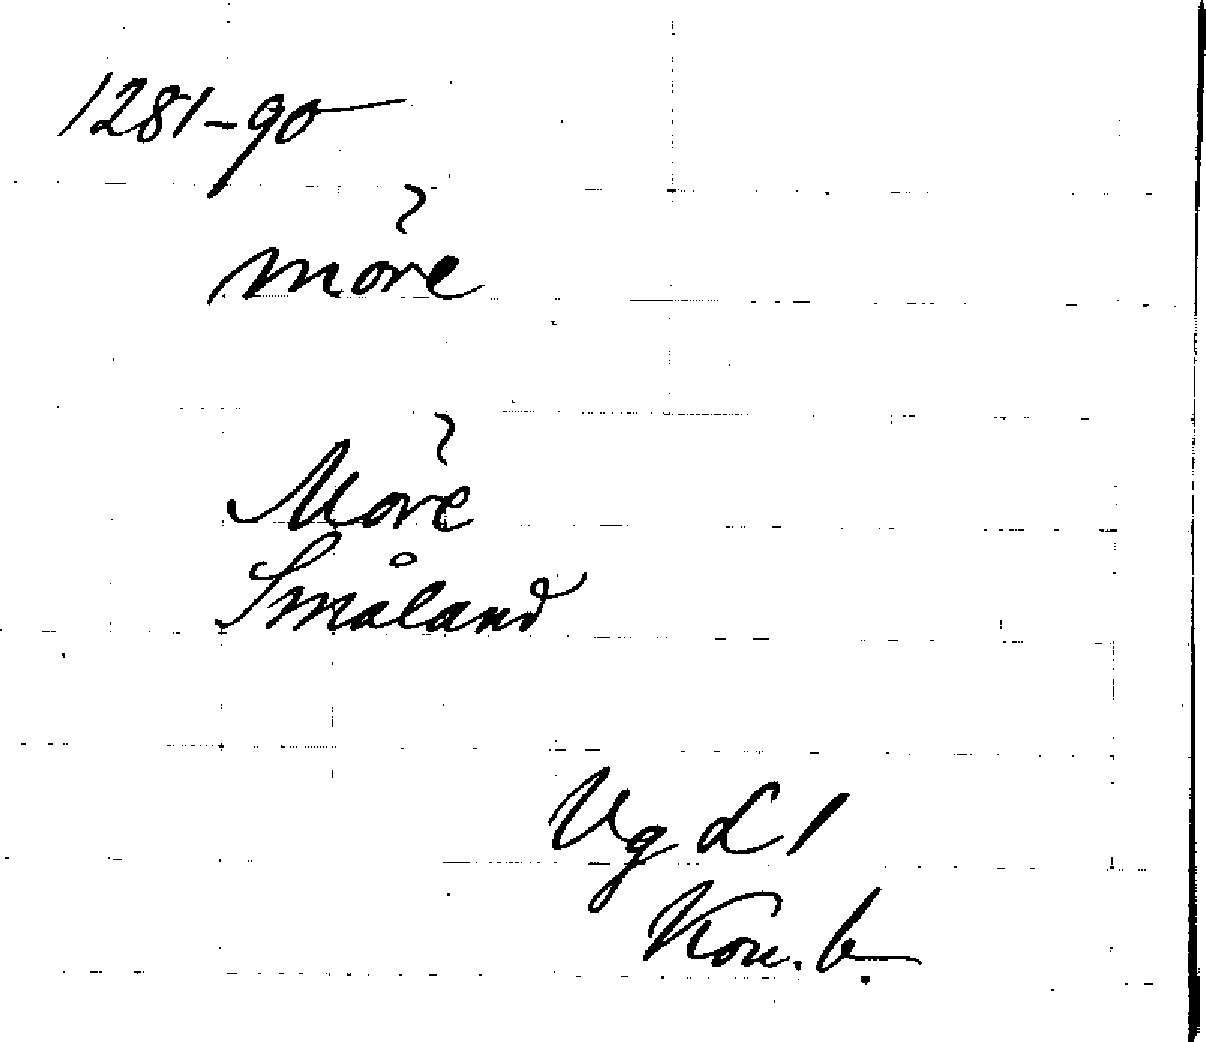 1281-90
möre
Möre
Småland
Vg L 1
Kon. b.